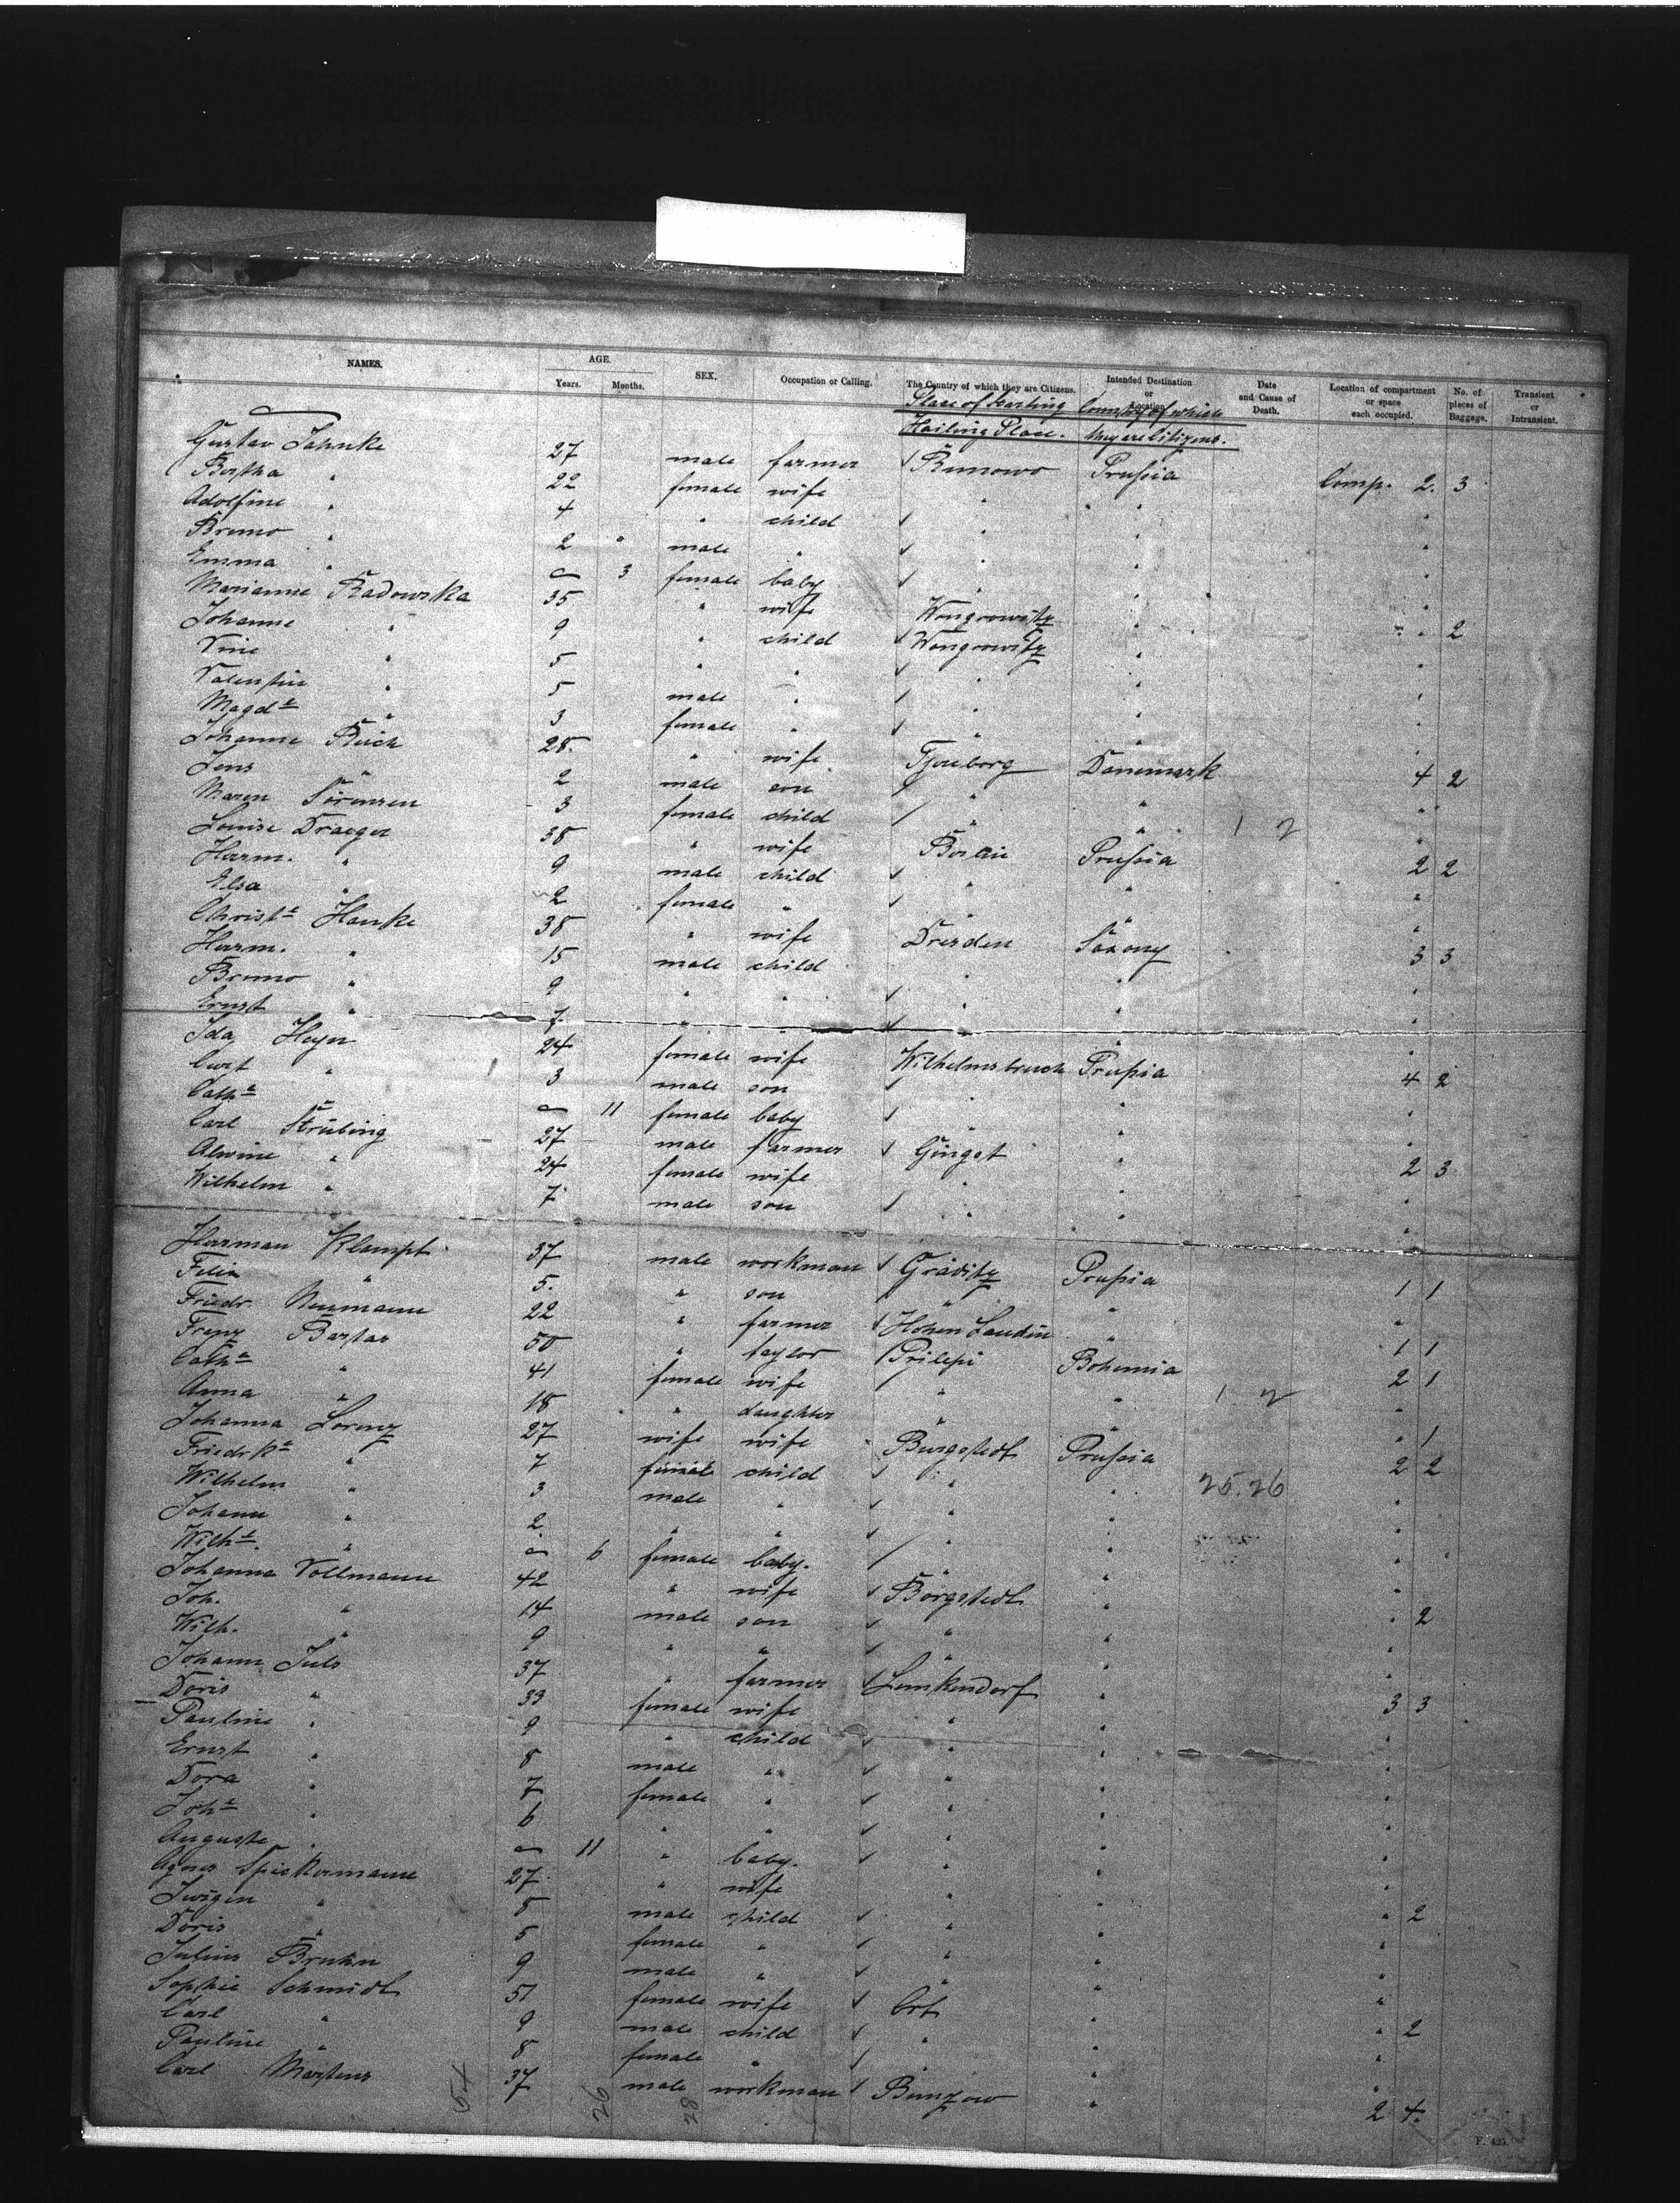 NAMES. AGE. Years. Months. SEX. Occupation or Calling. The Country of which they are Citizens. Intended Destination or Location. Date and Cause of Death. Location of compartment or space each occupied. No. of pieces of Baggage. Transient or Intransient.
Place of Starting Country of which
Hailing Place. they are Citizens.
Gustav Jahnke 27 male farmer ✓ Runowo Prussia Comp. 2. 3
Bertha " 22 female wife " "
Adolfine " 4 " child ✓ " "
Bruno " 2 " male " ✓ " "
Emma " 3 female baby ✓ " "
Marianne Radowska 35 " wife Wongrowitz " " 2
Johanne " 9 " child ✓ Wongrowitz "
Vine " 5 " " ✓ " "
Valentin " 5 male " ✓ " "
Magd^e " 3 female " ✓ " "
Johanne 28 " wife Danemark 4 2
Jens " 2 male son / " "
Maren Sörensen 3 female child / " " 1 2
Louise Draeger 38 " wife Berlin Prussia 2 2
Herm. " 9 male child ✓ " "
Elsa " 2 female " ✓ " "
Christ^e Hanke 38 " wife Dresden Saxony 3 3
Herm. " 15 male child " "
Bruno " 9 " " ✓ " "
Ernst " 7 " " ✓ "
Ida Heyer 24 female wife Wilhelmsbruch Prussia 4 2
Curt " 3 male son ✓ " "
Cath^e 11 female baby ✓ " "
Carl Strübing 27 male farmer ✓ Gingst " 2 3
Alwine " 24 female wife " "
Wilhelm " 7 male son ✓ " "
Herman Klampt 37 male workman ✓ Gräditz Prussia 1 1
Felix " 5. " son / " "
Friedr. Neumann 22 " farmer ✓ Hohen Landin " 1 1
Franz 50 " taylor / Prilepi Bohemia 2 1
Cath^e " 41 female wife / " " 1 2
Anna " 18 " daughter " " " 1
Johanna Lorenz 27 wife wife Burgstedt Prussia 2 2
Friedrk^e " 7 female child ✓ " " 25.26
Wilhelm " 3 male " ✓ " "
Johann " 2 " " ✓ " "
Wilh^e " 6 female baby. / " "
Johanna Vollmann 42 " wife ✓ Borgstedt " 2
Joh. " 14 male son ✓ " "
Wilh. " 9 " " ✓ " "
Johann Juls 37 " farmer ✓ Lemkendorf " 3 3
Doris " 33 female wife " "
Pauline " 9 " child ✓ " "
Ernst " 8 male " ✓ " "
Dora " 7 female " ✓ " "
Joh^e " 6 " " ✓ " "
Auguste " 11 " baby. ✓ " "
Agnes Spiekermann 27 " wife " " " 2
" 8 male child ✓ " "
Doris " 5 female " ✓ " "
Julius Bruhn 9 male " ✓ " "
Sophie Schmidt 51 female wife ✓ Ort " " 2
Carl " 9 male child ✓ " "
Pauline " 8 female " ✓ " "
Carl Martens 37 male workman ✓ Bunzow " 2 4.
54 26 28
F. 425.